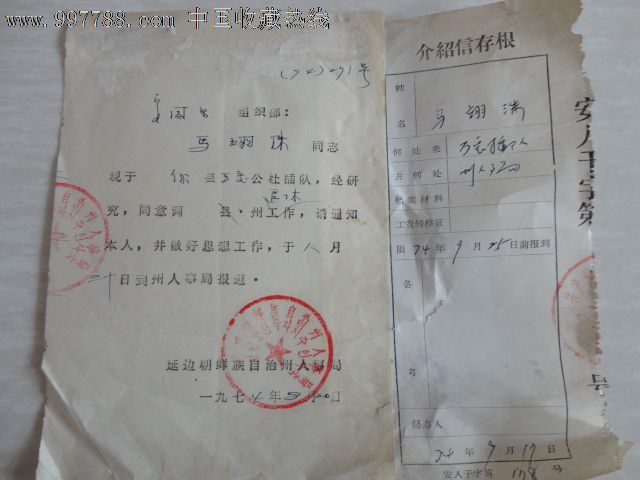 www.997788.com 中国收藏热线
(74)271号
组织部：
马翊 同志
现于 你 县万宝公社插队，经研
究，同意调 县、州工作，请通知
本人，并做好思想工作，于八月
日到州人事局报道。
延边朝鲜族自治州人事局
一九七4年 月20日
介紹信存根
姓名 马翊
何处来 万宝插队
去何处
档案材料
工资转移证
限74年9月25日前报到
备考
经办人
74年9月17日
安人干字第178号
安人干字第
号